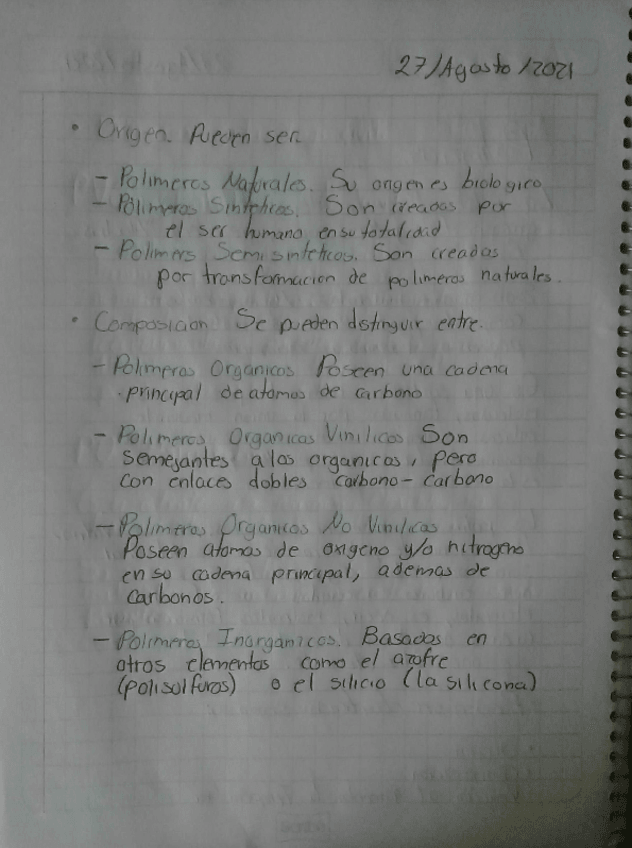 27/Agosto/2021
• Origen. Pueden ser.
- Polimeros Naturales. Su origen es biologico
- Polimeros Sinteticos. Son creados por
el ser humano en su totalidad
- Polimers Semisinteticos. Son creados
por transformacion de polimeros naturales.
• Composicion Se pueden distinguir entre.
- Polimeros Organicos Poseen una cadena
principal de atomos de carbono
- Polimeros Organicos Vinilicos Son
semejantes a los organicos, pero
con enlaces dobles carbono-carbono
- Polimeros Organicos No Vinilicos
Poseen atomos de oxigeno y/o nitrogeno
en su cadena principal, ademas de
carbonos.
- Polimeros Inorganicos. Basados en
otros elementos como el azofre
(polisulfuros) o el silicio (la silicona)